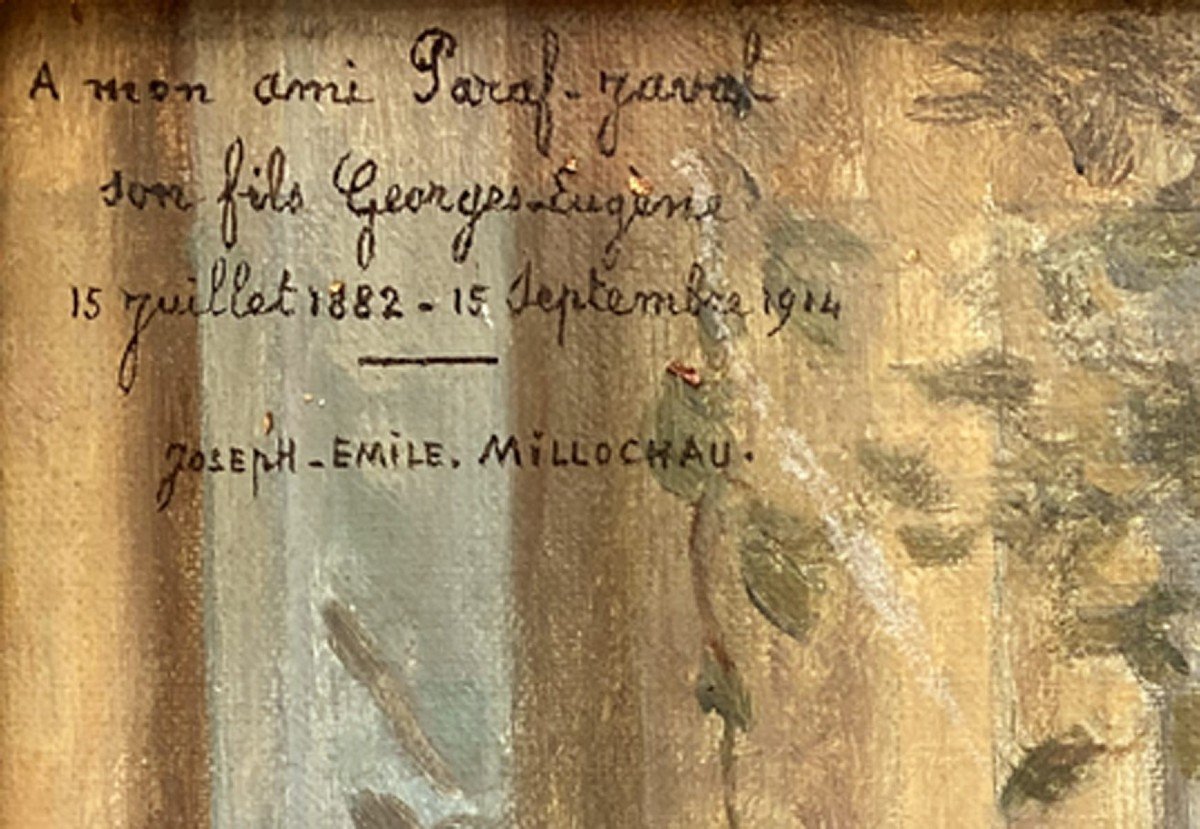 A mon ami Paraf-Javal
son fils Georges-Eugène
15 Juillet 1882 - 15 Septembre 1914
JOSEPH-EMILE. MILLOCHAU.